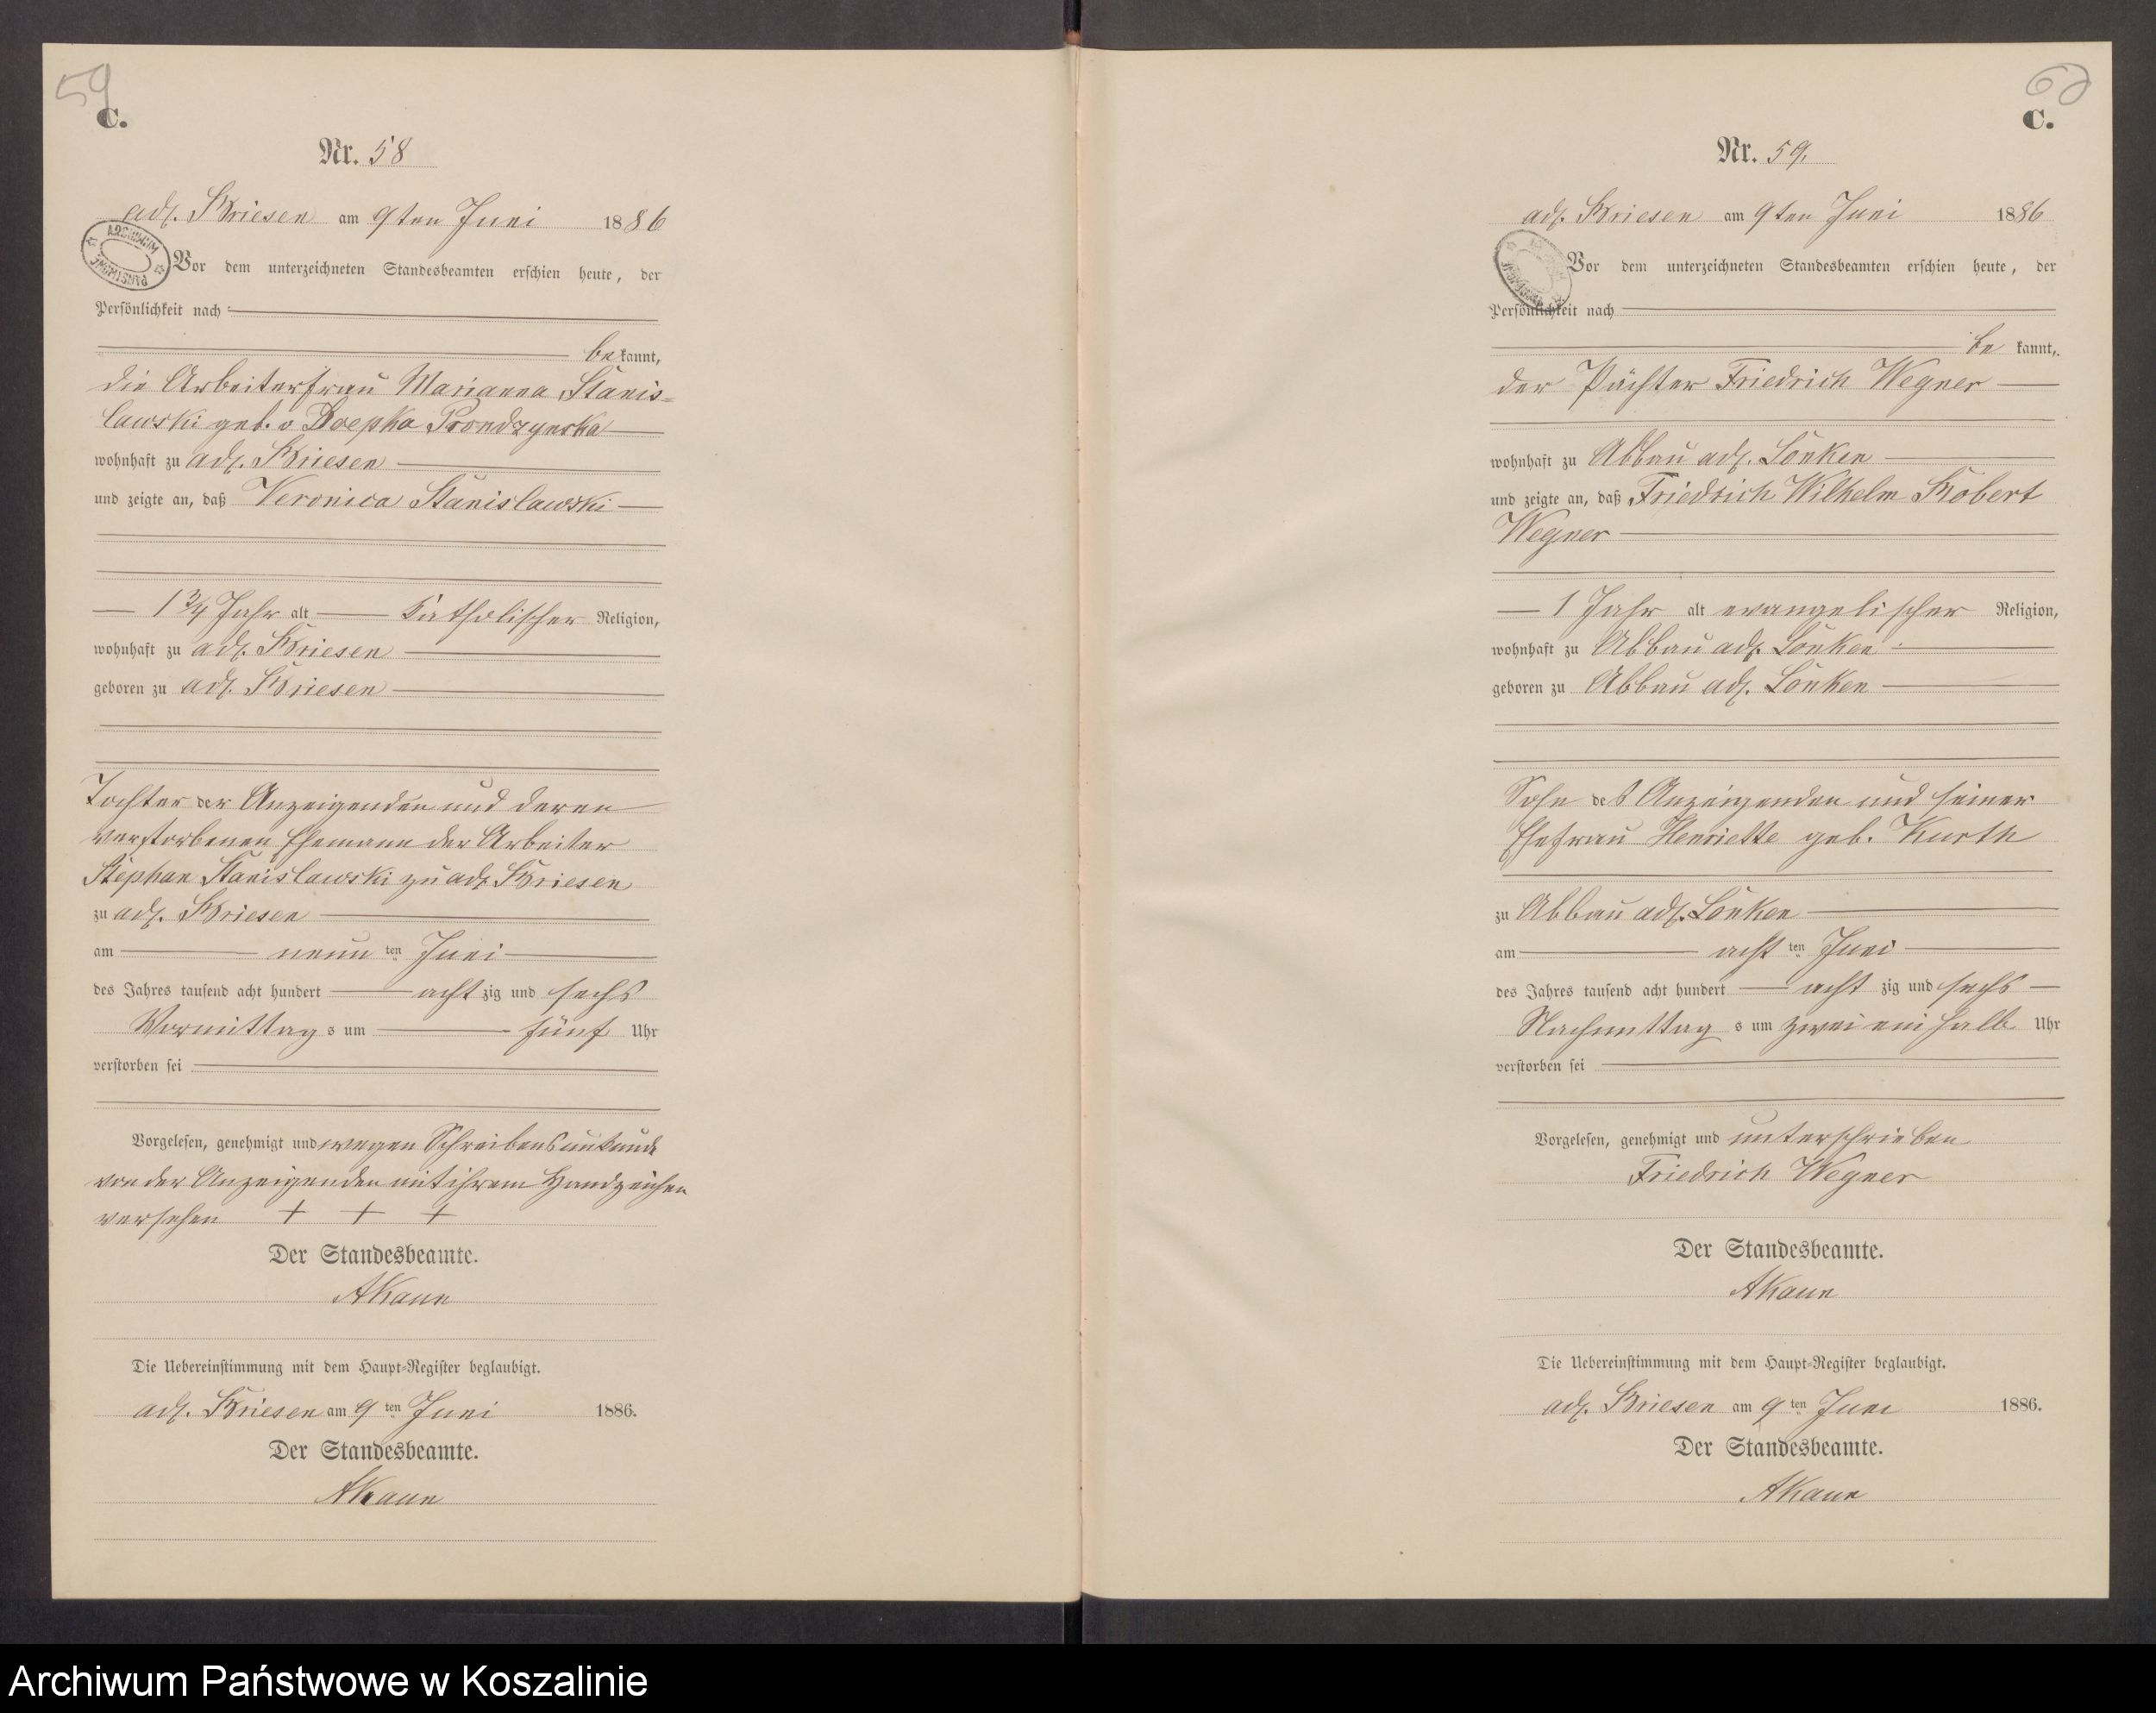 59
C.
Nr. 58
adl. Briesen am 9ten Juni 1886
Vor dem unterzeichneten Standesbeamten erschien heute, der
Persönlichkeit nach
be kannt,
die Arbeiterfrau Marianna Stanis-
lawski geb. v Prondzynska
wohnhaft zu adl. Briesen
und zeigte an, daß Veronica Stanislawski
1 3/4 Jahr alt katholischer Religion,
wohnhaft zu adl. Briesen
geboren zu adl. Briesen
Tochter der Anzeigenden und deren
verstorbenen Ehemann der Arbeiter
Stephan Stanislawski zu adl Briesen
zu adl. Briesen
am neun ten Juni
des Jahres tausend acht hundert acht zig und sechs
Vormittag s um fünf Uhr
verstorben sei
Vorgelesen, genehmigt und wegen Schreibensunkunde
von der Anzeigenden mit ihrem Handzeichen
versehen + + +
Der Standesbeamte.
AKaun
Die Uebereinstimmung mit dem Haupt-Register beglaubigt.
adl. Briesen am 9 ten Juni 1886.
Der Standesbeamte.
AKaun
60
C.
Nr. 59.
adl. Briesen am 9ten Juni 1886
Vor dem unterzeichneten Standesbeamten erschien heute, der
Persönlichkeit nach
be kannt,
der Pächter Friedrich Wegner
wohnhaft zu Abbau adl. Lonken
und zeigte an, daß Friedrich Wilhelm Robert
Wegner
1 Jahr alt evangelischer Religion,
wohnhaft zu Abbau adl. Lonken
geboren zu Abbau adl. Lonken
Sohn des Anzeigenden und seiner
Ehefrau Henriette geb. Kurth
zu Abbau adl. Lonken
am acht ten Juni
des Jahres tausend acht hundert acht zig und sechs
Nachmittag s um zwei ein halb Uhr
verstorben sei
Vorgelesen, genehmigt und unterschrieben
Friedrich Wegner
Der Standesbeamte.
AKaun
Die Uebereinstimmung mit dem Haupt-Register beglaubigt.
adl. Briesen am 9 ten Juni 1886.
Der Standesbeamte.
AKaun
Archiwum Państwowe w Koszalinie